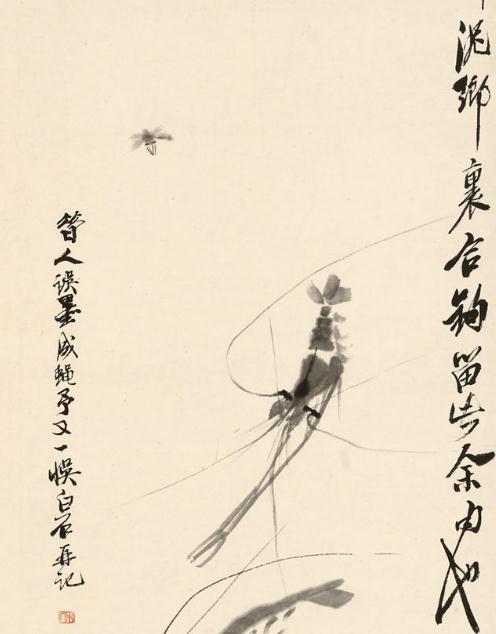 泥鄉裏合鉤留告余由也
昔人誤墨成蠅予又一悞白石再記